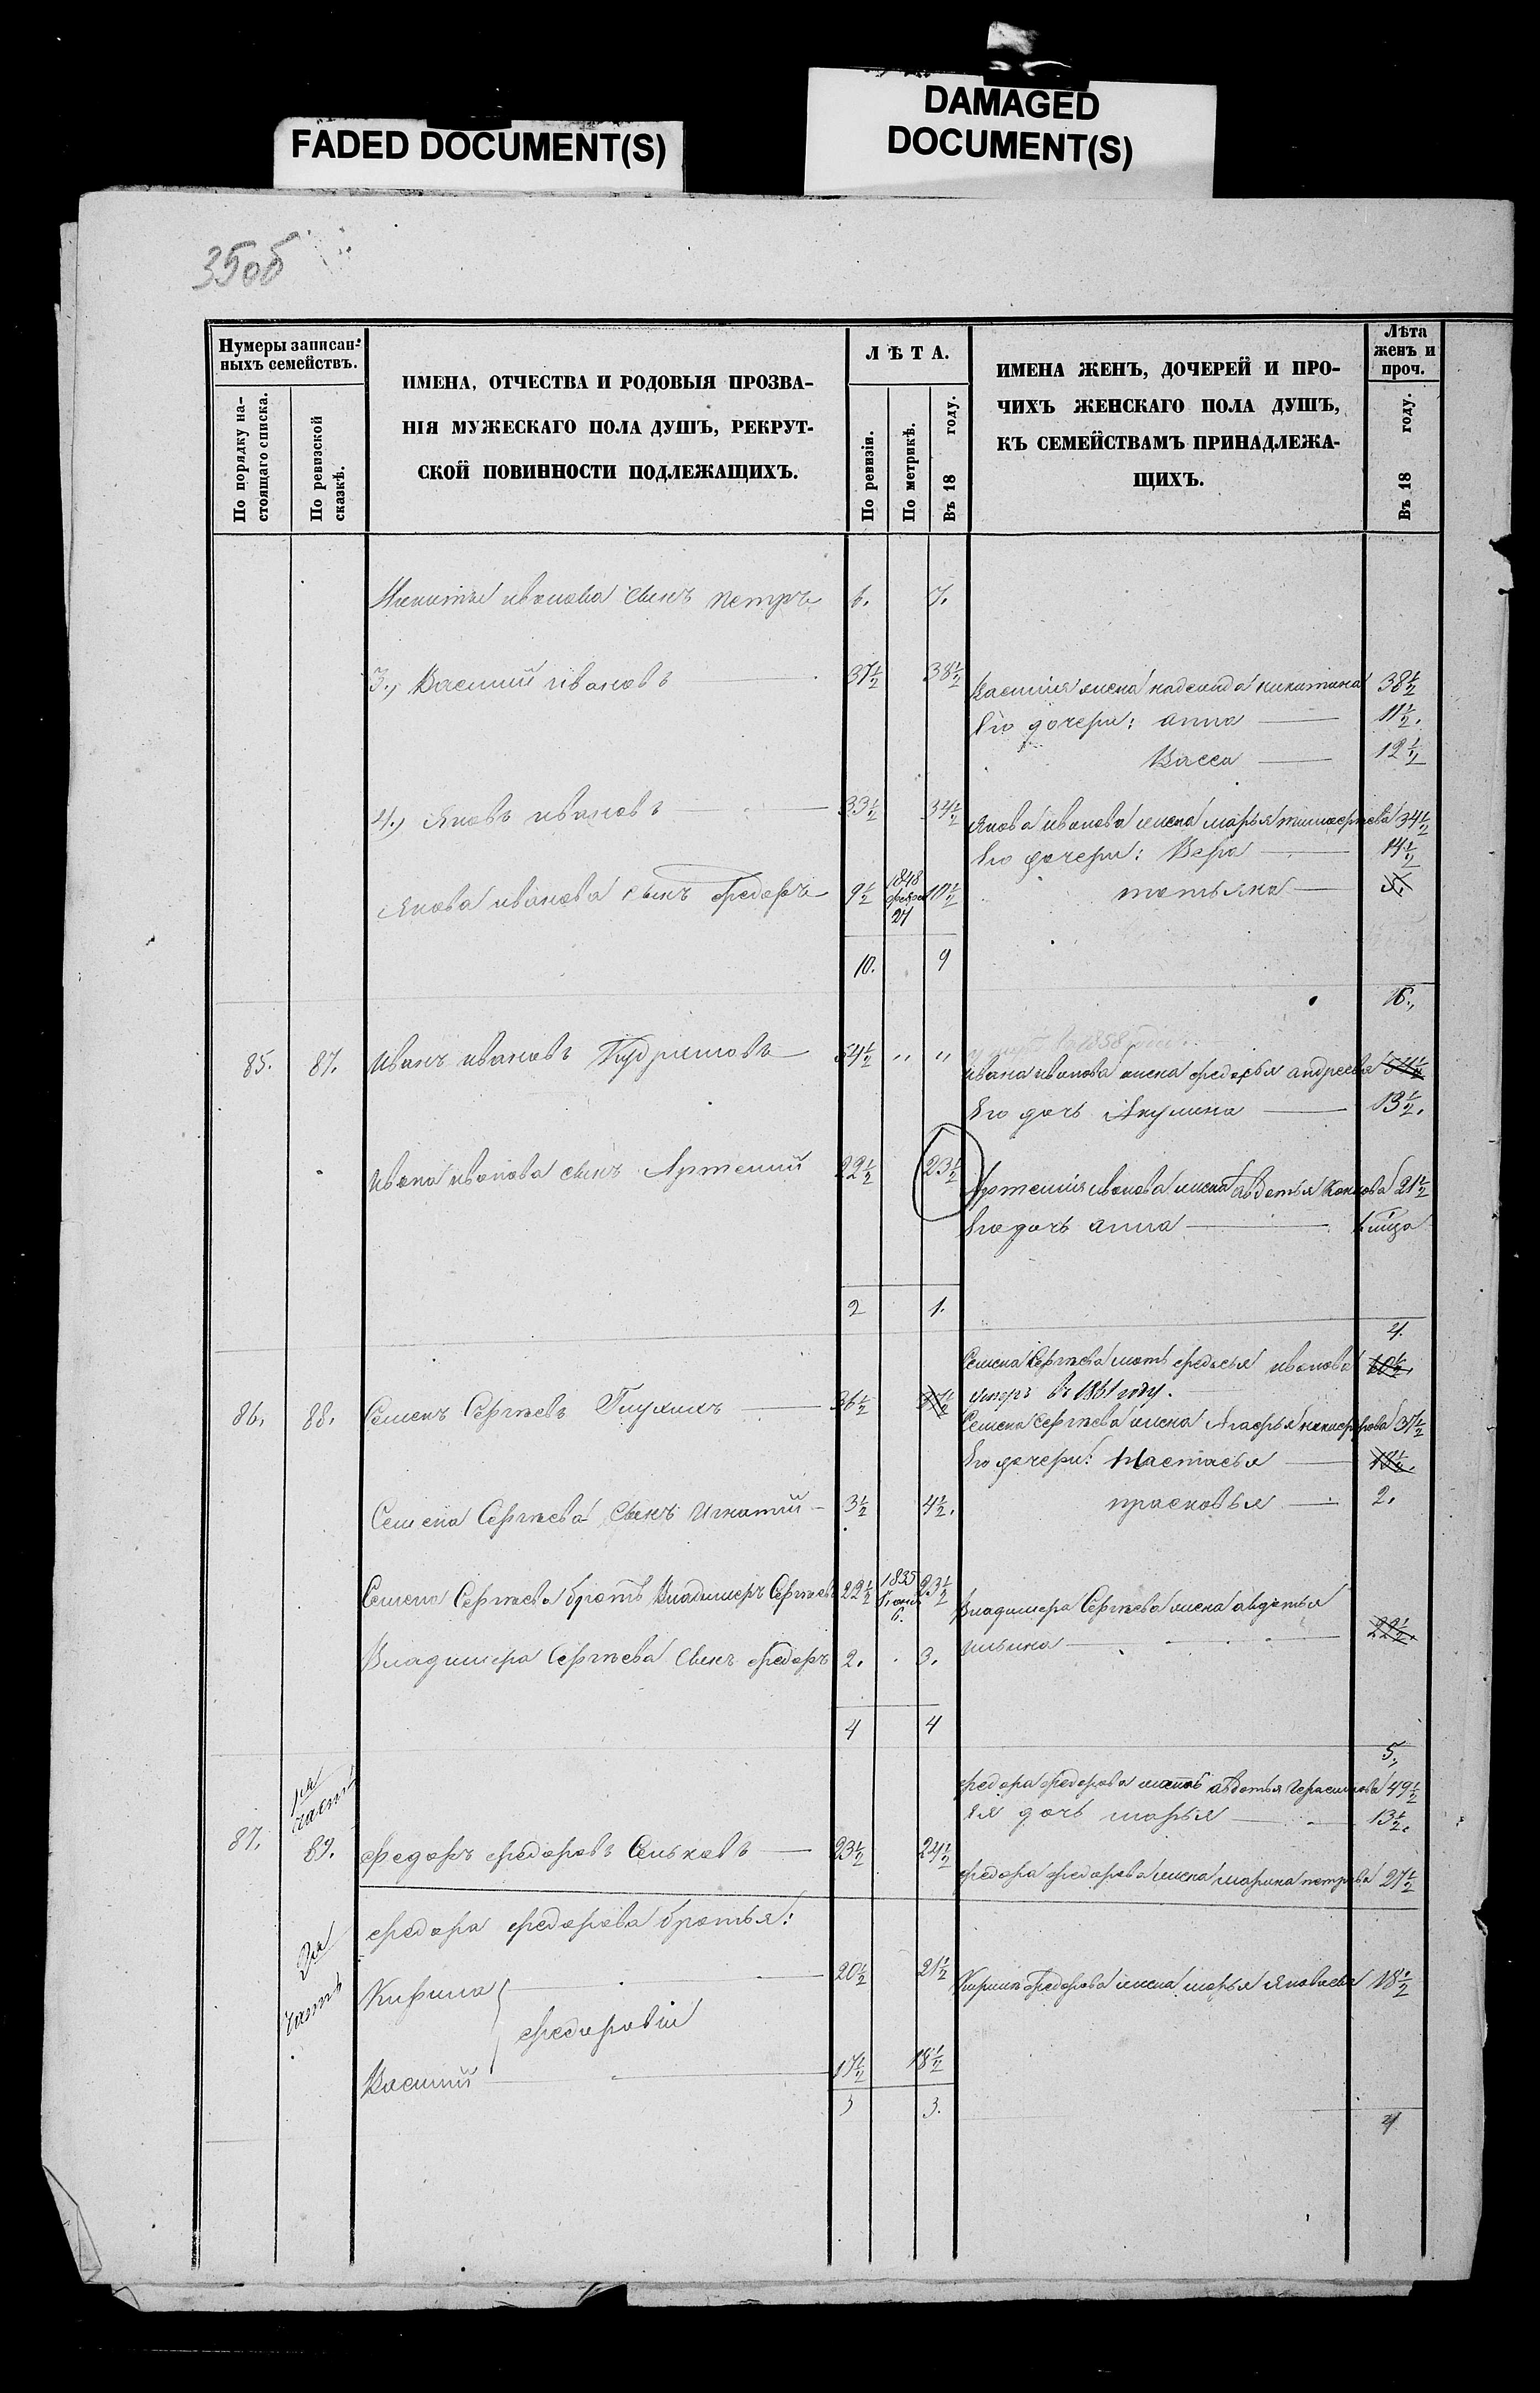 FADED DOCUMENT(S)
DAMAGED
DOCUMENT(S)
35об
Нумеры записан-
ныхъ семействъ.
По порядку на-
стоящаго списка.
По ревизской
сказкѣ.
ИМЕНА, ОТЧЕСТВА И РОДОВЫЯ ПРОЗВА-
НІЯ МУЖЕСКАГО ПОЛА ДУШЪ, РЕКРУТ-
СКОЙ ПОВИННОСТИ ПОДЛЕЖАЩИХЪ.
ЛѢТА.
По ревизіи.
По метрикѣ.
Въ 18 году.
ИМЕНА ЖЕНЪ, ДОЧЕРЕЙ И ПРО-
ЧИХЪ ЖЕНСКАГО ПОЛА ДУШЪ,
КЪ СЕМЕЙСТВАМЪ ПРИНАДЛЕЖА-
ЩИХЪ.
Лѣта
женъ и
проч.
Въ 18 году.
Никиты иванова сынъ петръ 6. 7.
3., Василий ивановъ 37½ 38½
Василия жена надежда никитина 38½
Его дочери: анна 11½.
Васса 12½
4., Яковъ ивановъ 33½ 34½
Якова иванова жена марья тимофеева 34½
Его дочери: Вера 14½
Якова иванова сынъ федоръ 9½ 1848 24 10½
татьяна
10. 9
16.,
85. 87. Иванъ ивановъ 54½ " "
в 1858 году.
ивана иванова жена федосья андреева 54½
Его дочь Акулина 13½.
Ивана иванова сынъ Артемий 22½ 23½
Артемия иванова жена авдотья 21½
Его дочь анна
2 1.
4.
Семена Сергѣева мать федосья иванова 60½
умерь въ 1861 году.
86. 88. Семенъ Сергѣевъ 36½ 37½
Семена Сергѣева жена Агафья никифорова 37½
Его дочери: Настасья 18½.
Семена Сергѣева сынъ Игнатий 3½ 4½.
прасковья 2.
Семена Сергѣева братъ Владимеръ Сергѣевъ 22½ 1835 6. 23½
Владимера Сергѣева жена авдотья
ильина 22½.
Владимера Сергѣева сынъ федоръ 2. 3.
4 4
5.,
федора федорова мать авдотья Герасимова 49½
Ея дочь марья 13½.
87. 1я часть 89. Федоръ федоровъ Сеньковъ 23½ 24½
федора федорова жена марина петрова 27½
2я часть
федора федорова братья:
Кирила 20½ 21½
Кирила федорова жена марья Яковлева 18½
федоровы
Василий 17½ 18½
3 3.
4